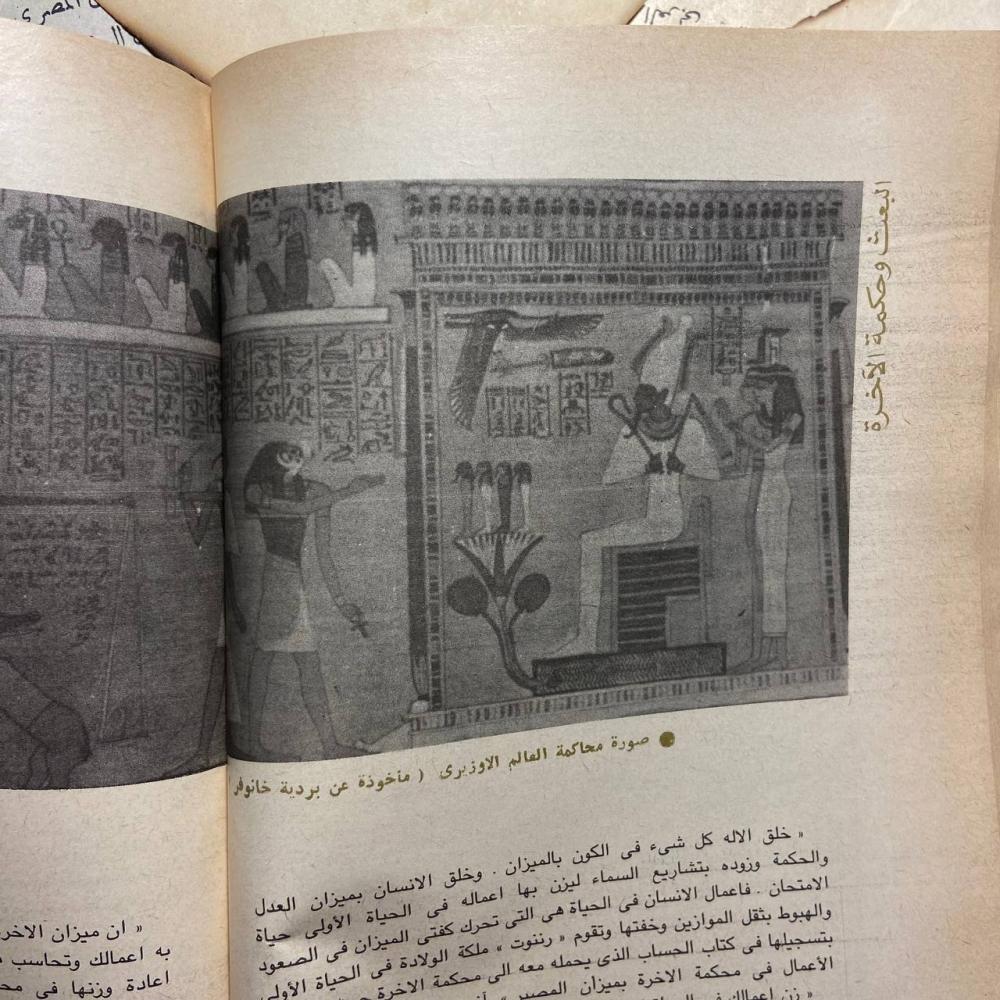 المصرى
العربى
البعث وحكمة الآخرة
● صورة محاكمة العالم الاوزيرى ( مأخوذة عن بردية خانوفر
« خلق الاله كل شىء فى الكون بالميزان . وخلق الانسان بميزان العدل
والحكمة وزوده بتشاريع السماء ليزن بها اعماله فى الحياة الأولى حياة
الامتحان . فاعمال الانسان فى الحياة هى التى تحرك كفتى الميزان فى الصعود
والهبوط بثقل الموازين وخفتها وتقوم « رننوت » ملكة الولادة فى الحياة الأولى
بتسجيلها فى كتاب الحساب الذى يحمله معه الى محكمة الاخرة
الأعمال فى محكمة الاخرة بميزان المصير »
« زن اعمالك فى
« ان ميزان الاخر
به اعمالك وتحاسب
اعادة وزنها فى